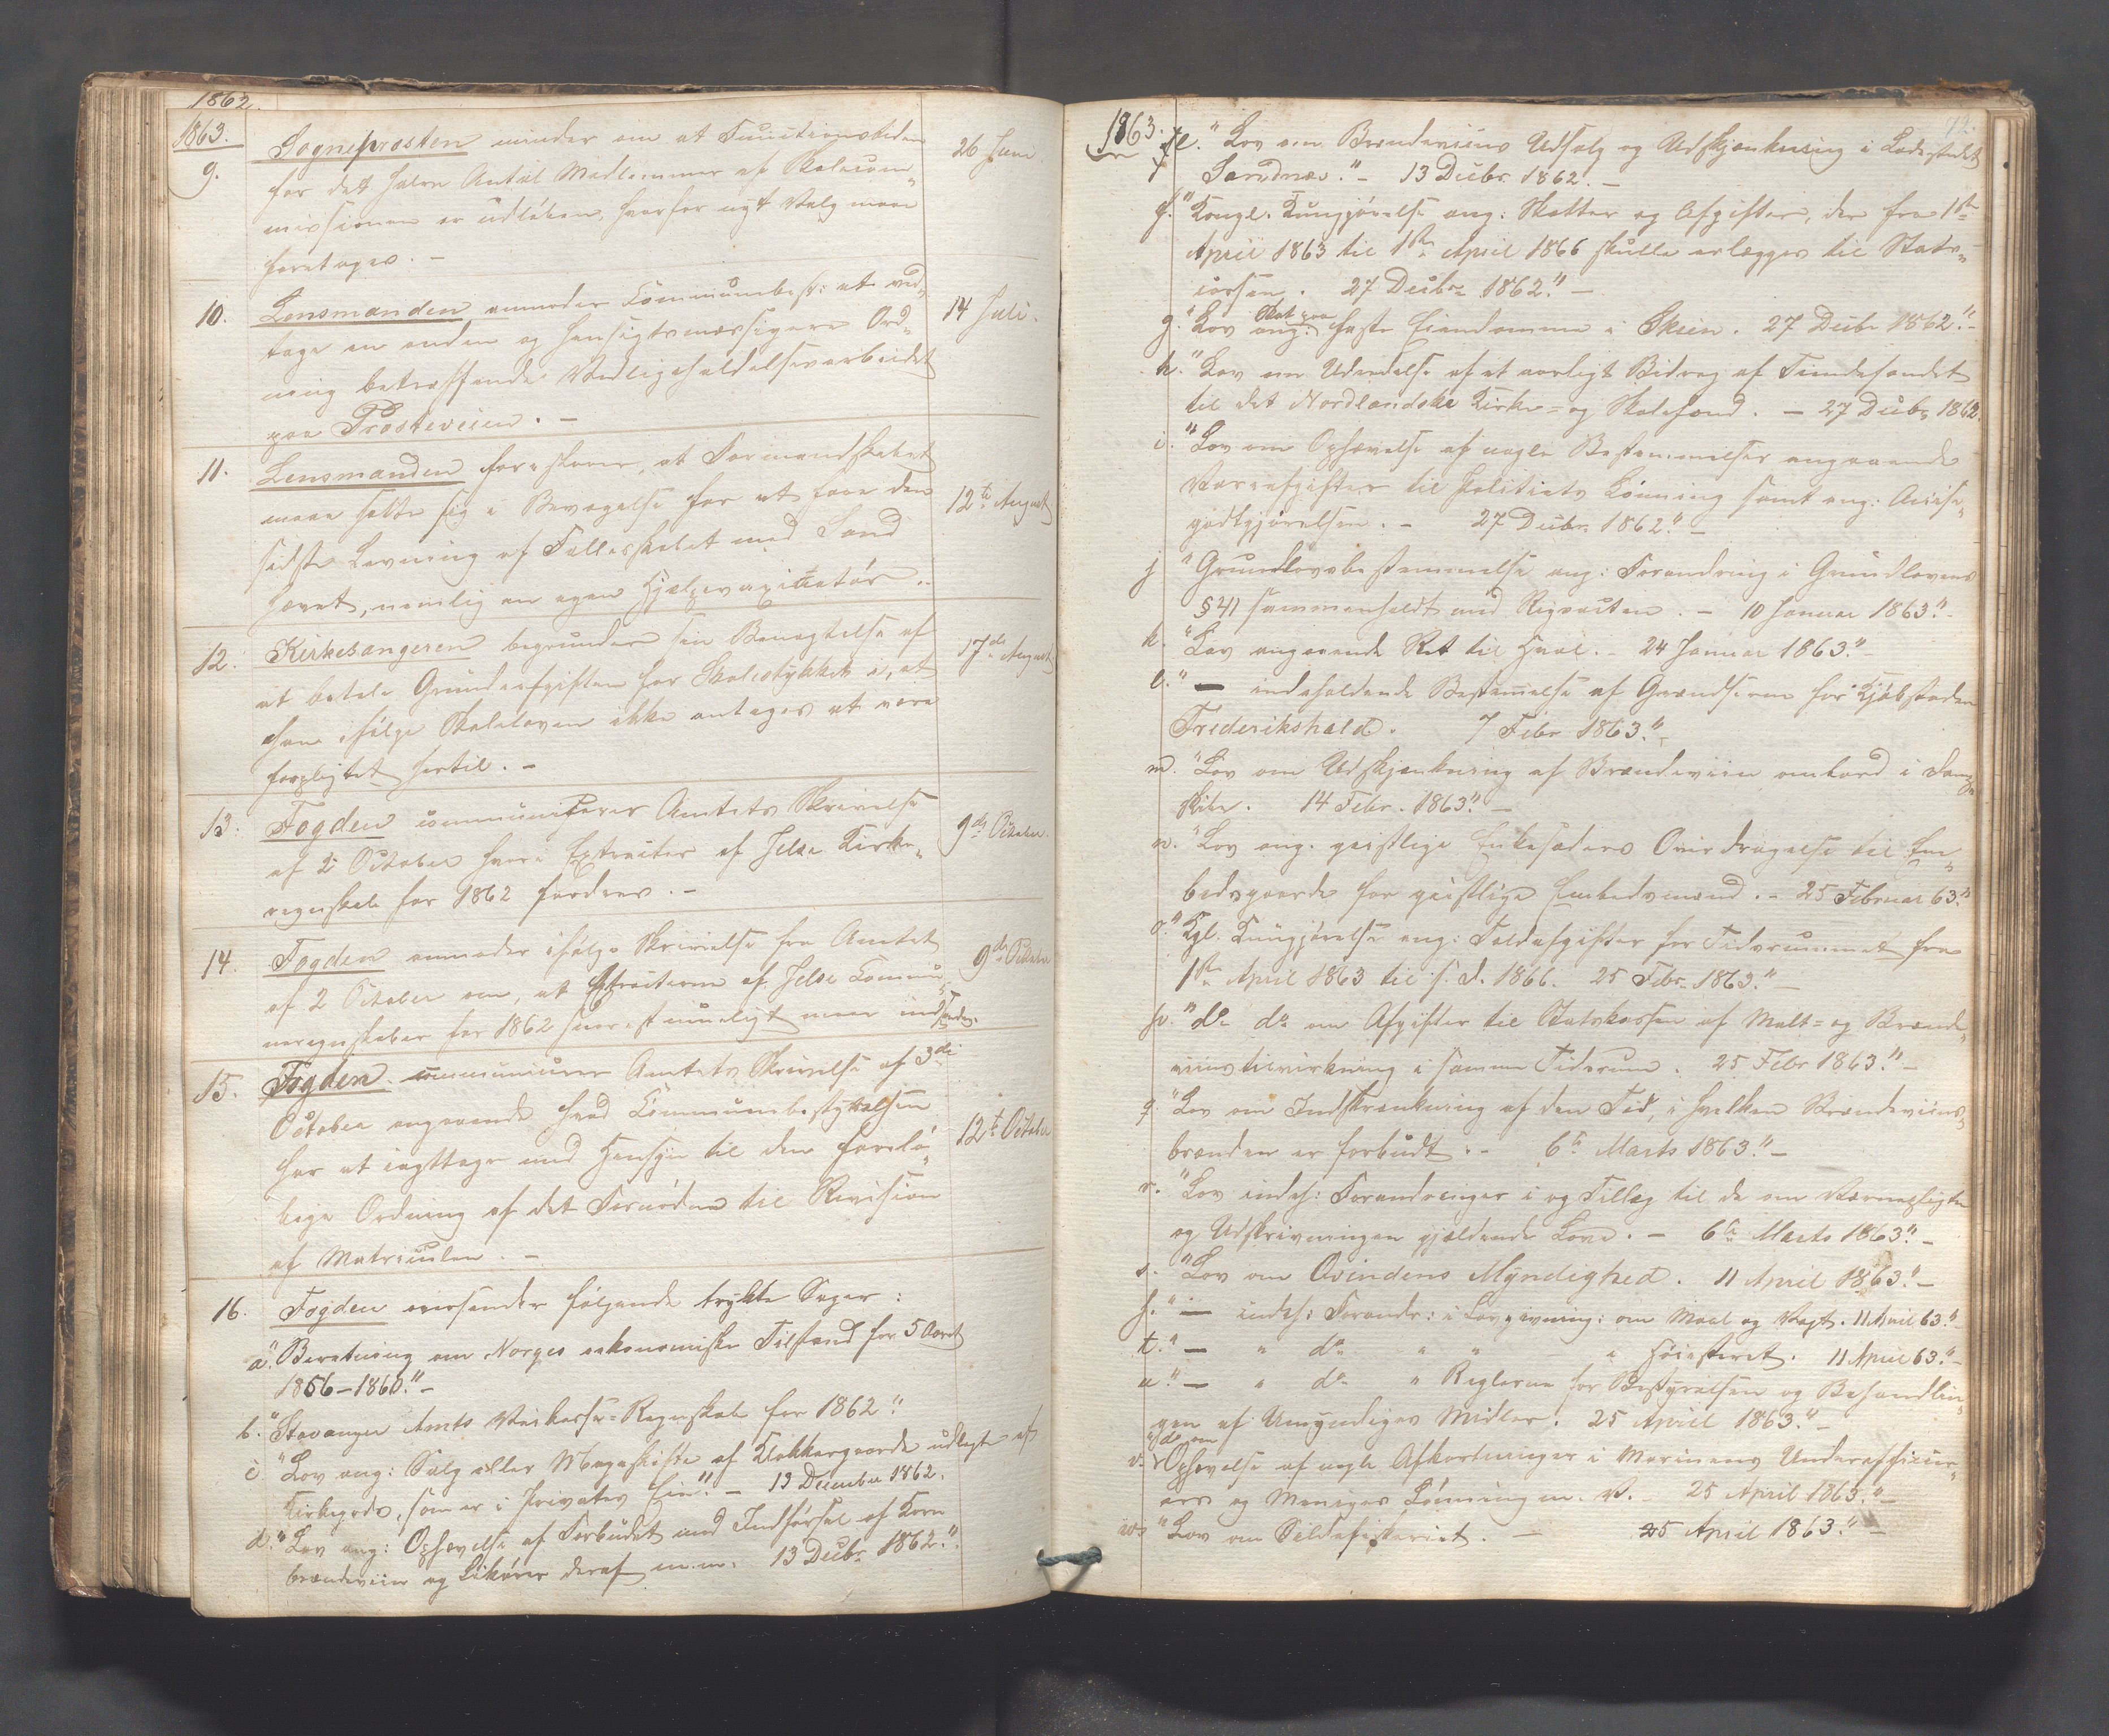 1862.
1863.
9. Sogneprosten minder om at Functionstiden 26 Juni.
for det halve Antal Medlemmer af Skolecom-
missionen er udløben, hvorfor nyt Valg maa
foretages. -
10. Lensmanden anmoder Communebest: at ved- 14 Juli.
tage en anden og hensigtsmæssigere Ord-
ning betræffende Vedligeholdelsesarbeidet
paa Prosteveien. -
11. Lensmanden foreslaaer, at Formandskabet
maa sætte sig i Bevægelse for at faae den 12te August
sidste Levning af Fællesskabet med Sand
hævet, nemlig en egen Hjælpevaxinatør. -
12. Kirkesangeren begrunder sin Benægtelse af 17de August
at betale Grundeafgiften for Skolestykket i, at
han ifølge Skoleloven ikke antages at være
forpligtet hertil. -
13. Fogden communicerer Amtets Skrivelse 9de October.
af 2 October hvori Extracter af Jelse Kirke-
regnskab for 1862 fordres. -
14. Fogden anmoder ifølge Skrivelse fra Amtet 9de October
af 2 October om, at Extracterne af Jelse Commu-
neregnskaber for 1862 snarest mueligt maa indsendes.
15. Fogden communicerer Amtets Skrivelse af 3die
October angaaende hvad Communebestyrelsen 12te October
har at iagttage med Hensyn til den foreslø-
bige Ordning af det Fornødne til Revision
af Matriculen. -
16. Fogden oversender følgende trykte Sager:
a. "Beretning om Norges oekonomiske Tilstand for 5 Aaret
1856-1860." -
b. "Stavanger Amts Veikasse-Regnskab for 1862."
c. "Lov ang: Salg eller Mageskifte af Klokkergaarde udlagte af
Kirkegods, som er i Privates Eie." - 13 December 1862.
d. "Lov ang: Ophævelse af Forbudet mod Indførsel af Korn
brændeviin og Likører deraf m. m. 13 Decbr 1862."
1863. 72.
e. "Lov om Brændeviins Udsalg og Udskjænkning i Ladestedet
Sandnæs." - 13 Decbr. 1862. -
f. "Kongl. Kungjørelse ang: Skatter og Afgifter, der fra 1ste
April 1863 til 1ste April 1866 skulle erlægges til Stats-
cassen. 27 Decbr 1862." -
g. "Lov ang: Skat paa faste Eiendomme i Skien. 27 Decbr 1862." -
h. "Lov om Udredelse af et aarligt Bidrag af Tiendefondet
til det Nordlandske Kirke- og Skolefond. - 27 Decbr 1862.
i. "Lov om Ophævelse af nogle Bestemmelser angaaende
Vareafgifter til Politiets Lønning samt ang: Accise-
godtgjørelsen. - 27 Decbr. 1862." -
j "Grundlovsbestemmelse ang: Forandring i Grundlovens
§ 41 sammenholdt med Rigsacten. - 10 Januar 1863." -
k. "Lov angaaende Ret til Hval. - 24 Januar 1863." -
l. " — indeholdende Bestemmelse af Grændserne for Kjøbstaden
Frederikshald. 7 Febr 1863." -
m. "Lov om Udskjænkning af Brændeviin ombord i Damp-
skibe. 14 Febr. 1863." -
n. "Lov ang. geistlige Enkesæders Overdragelse til Em-
bedsgaarde for geistlige Embedsmænd. - 25 Februar 63."
o. "Kgl. Kungjørelse ang: Toldafgifter for Tidsrummet fra
1ste April 1863 til s. D. 1866. 25 Febr. 1863." -
p. "do do om Afgifter til Statskassen af Malt- og Brænde-
viinstilvirkning i samme Tidsrum. 25 Febr 1863." -
q. "Lov om Indskrænkning af den Tid, i hvilken Brændeviins-
brænden er forbudt. - 6te Marts 1863." -
r. "Lov indeh: Forandringer i og Tillæg til de om Værnepligten
og Udskrivningen gjældende Love. - 6te Marts 1863." -
s. "Lov om Qvindens Myndighed. 11 April 1863." -
" — indeh: Forandr: i Lovgivning: om Maal og Vægt. 11 April 63." -
t. " — " do " " " Høiesteret. 11 April 63." -
u. " — " do " Reglerne for Bestyrelsen og Behandlin-
gen af Umyndiges Midler. 25 April 1863." -
v. "do om Ophævelse af nogle Afkortninger i Marinens Underofficier-
ers og Meniges Lønning m. V. - 25 April 1863." -
w. "Lov om Sildefiskeriet. - 25 April 1863." -